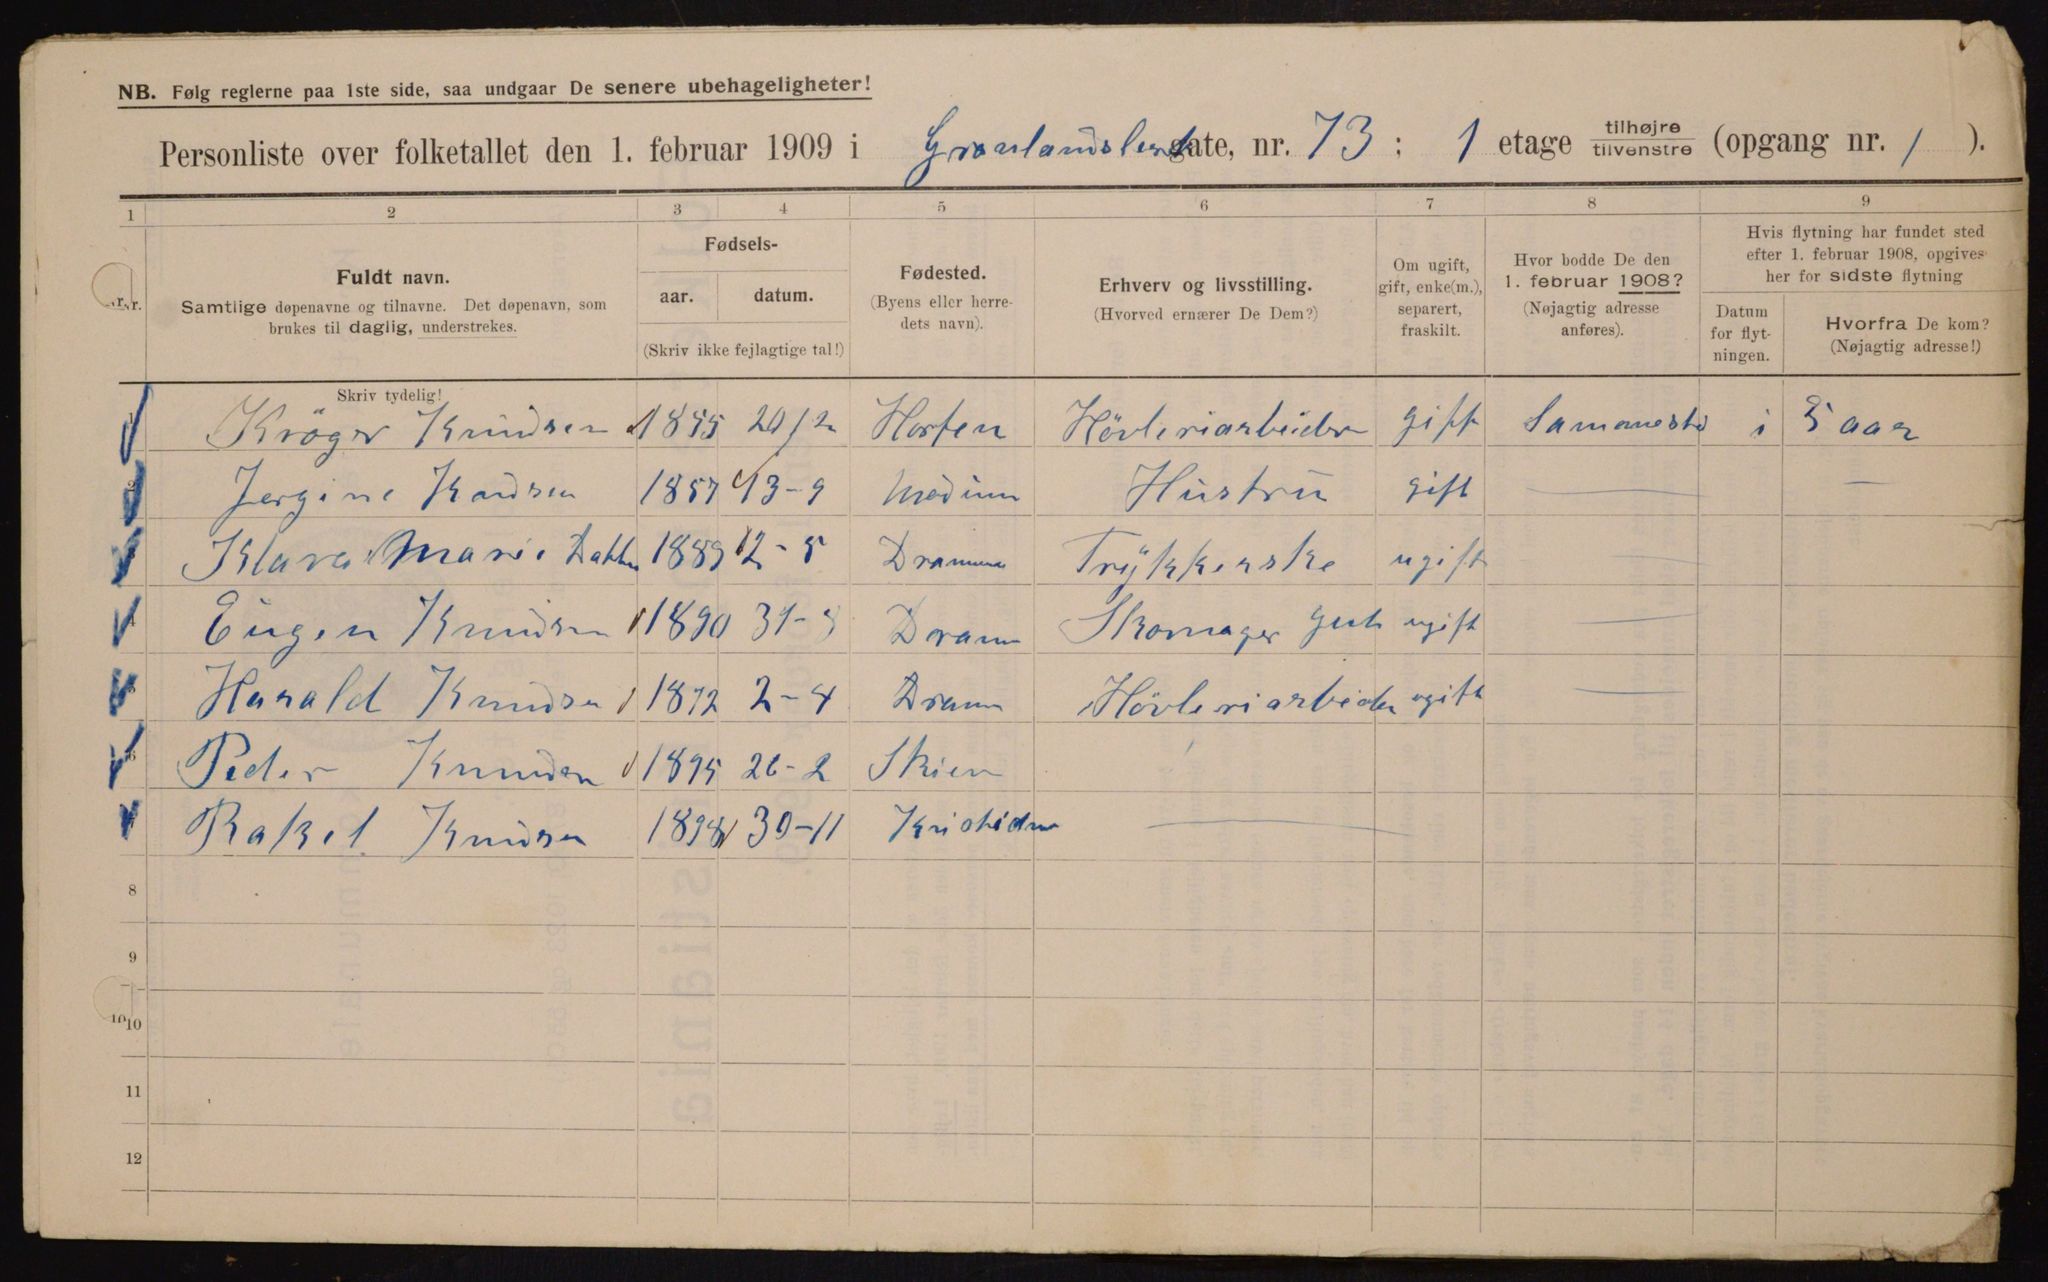 NB. Følg reglerne paa 1ste side, saa undgaar De senere ubehageligheter!
Personliste over folketallet den 1. februar 1909 i Grønlandsleret gate, nr. 73 : 1 etage tilhøjre tilvenstre (opgang nr. 1 ).
1 2 3 4 5 6 7 8 9
Nr.
Fuldt navn.
Samtlige døpenavne og tilnavne. Det døpenavn, som
brukes til daglig, understrekes.
Skriv tydelig!
Fødsels-
aar. datum.
(Skriv ikke fejlagtige tal!)
Fødested.
(Byens eller herre-
dets navn).
Erhverv og livsstilling.
(Hvorved ernærer De Dem?)
Om ugift,
gift, enke(m.),
separert,
fraskilt.
Hvor bodde De den
1. februar 1908?
(Nøjagtig adresse
anføres).
Hvis flytning har fundet sted
efter 1. februar 1908, opgives
her for sidste flytning
Datum
for flyt-
ningen.
Hvorfra De kom?
(Nøjagtig adresse!)
1 Kröger Knudsen 1855 20/2 Horten Hövleriarbeider gift Sammested i 5 aar
2 Jergine Knudsen 1857 13-9 Modum Hustru gift — —
Klara Marie 1889 12-5 Drammen Trykkerske ugift —
Eugen Knudsen 1890 31-8 Dramm Skomager gut ugift —
Harald Knudsen 1872 2-4 Dramm Hövleriarbeider ugift —
Peder Knudsen 1895 26-2 Skien
Rakel Knudsen 1898 30-11 —
8
9
10
11
12